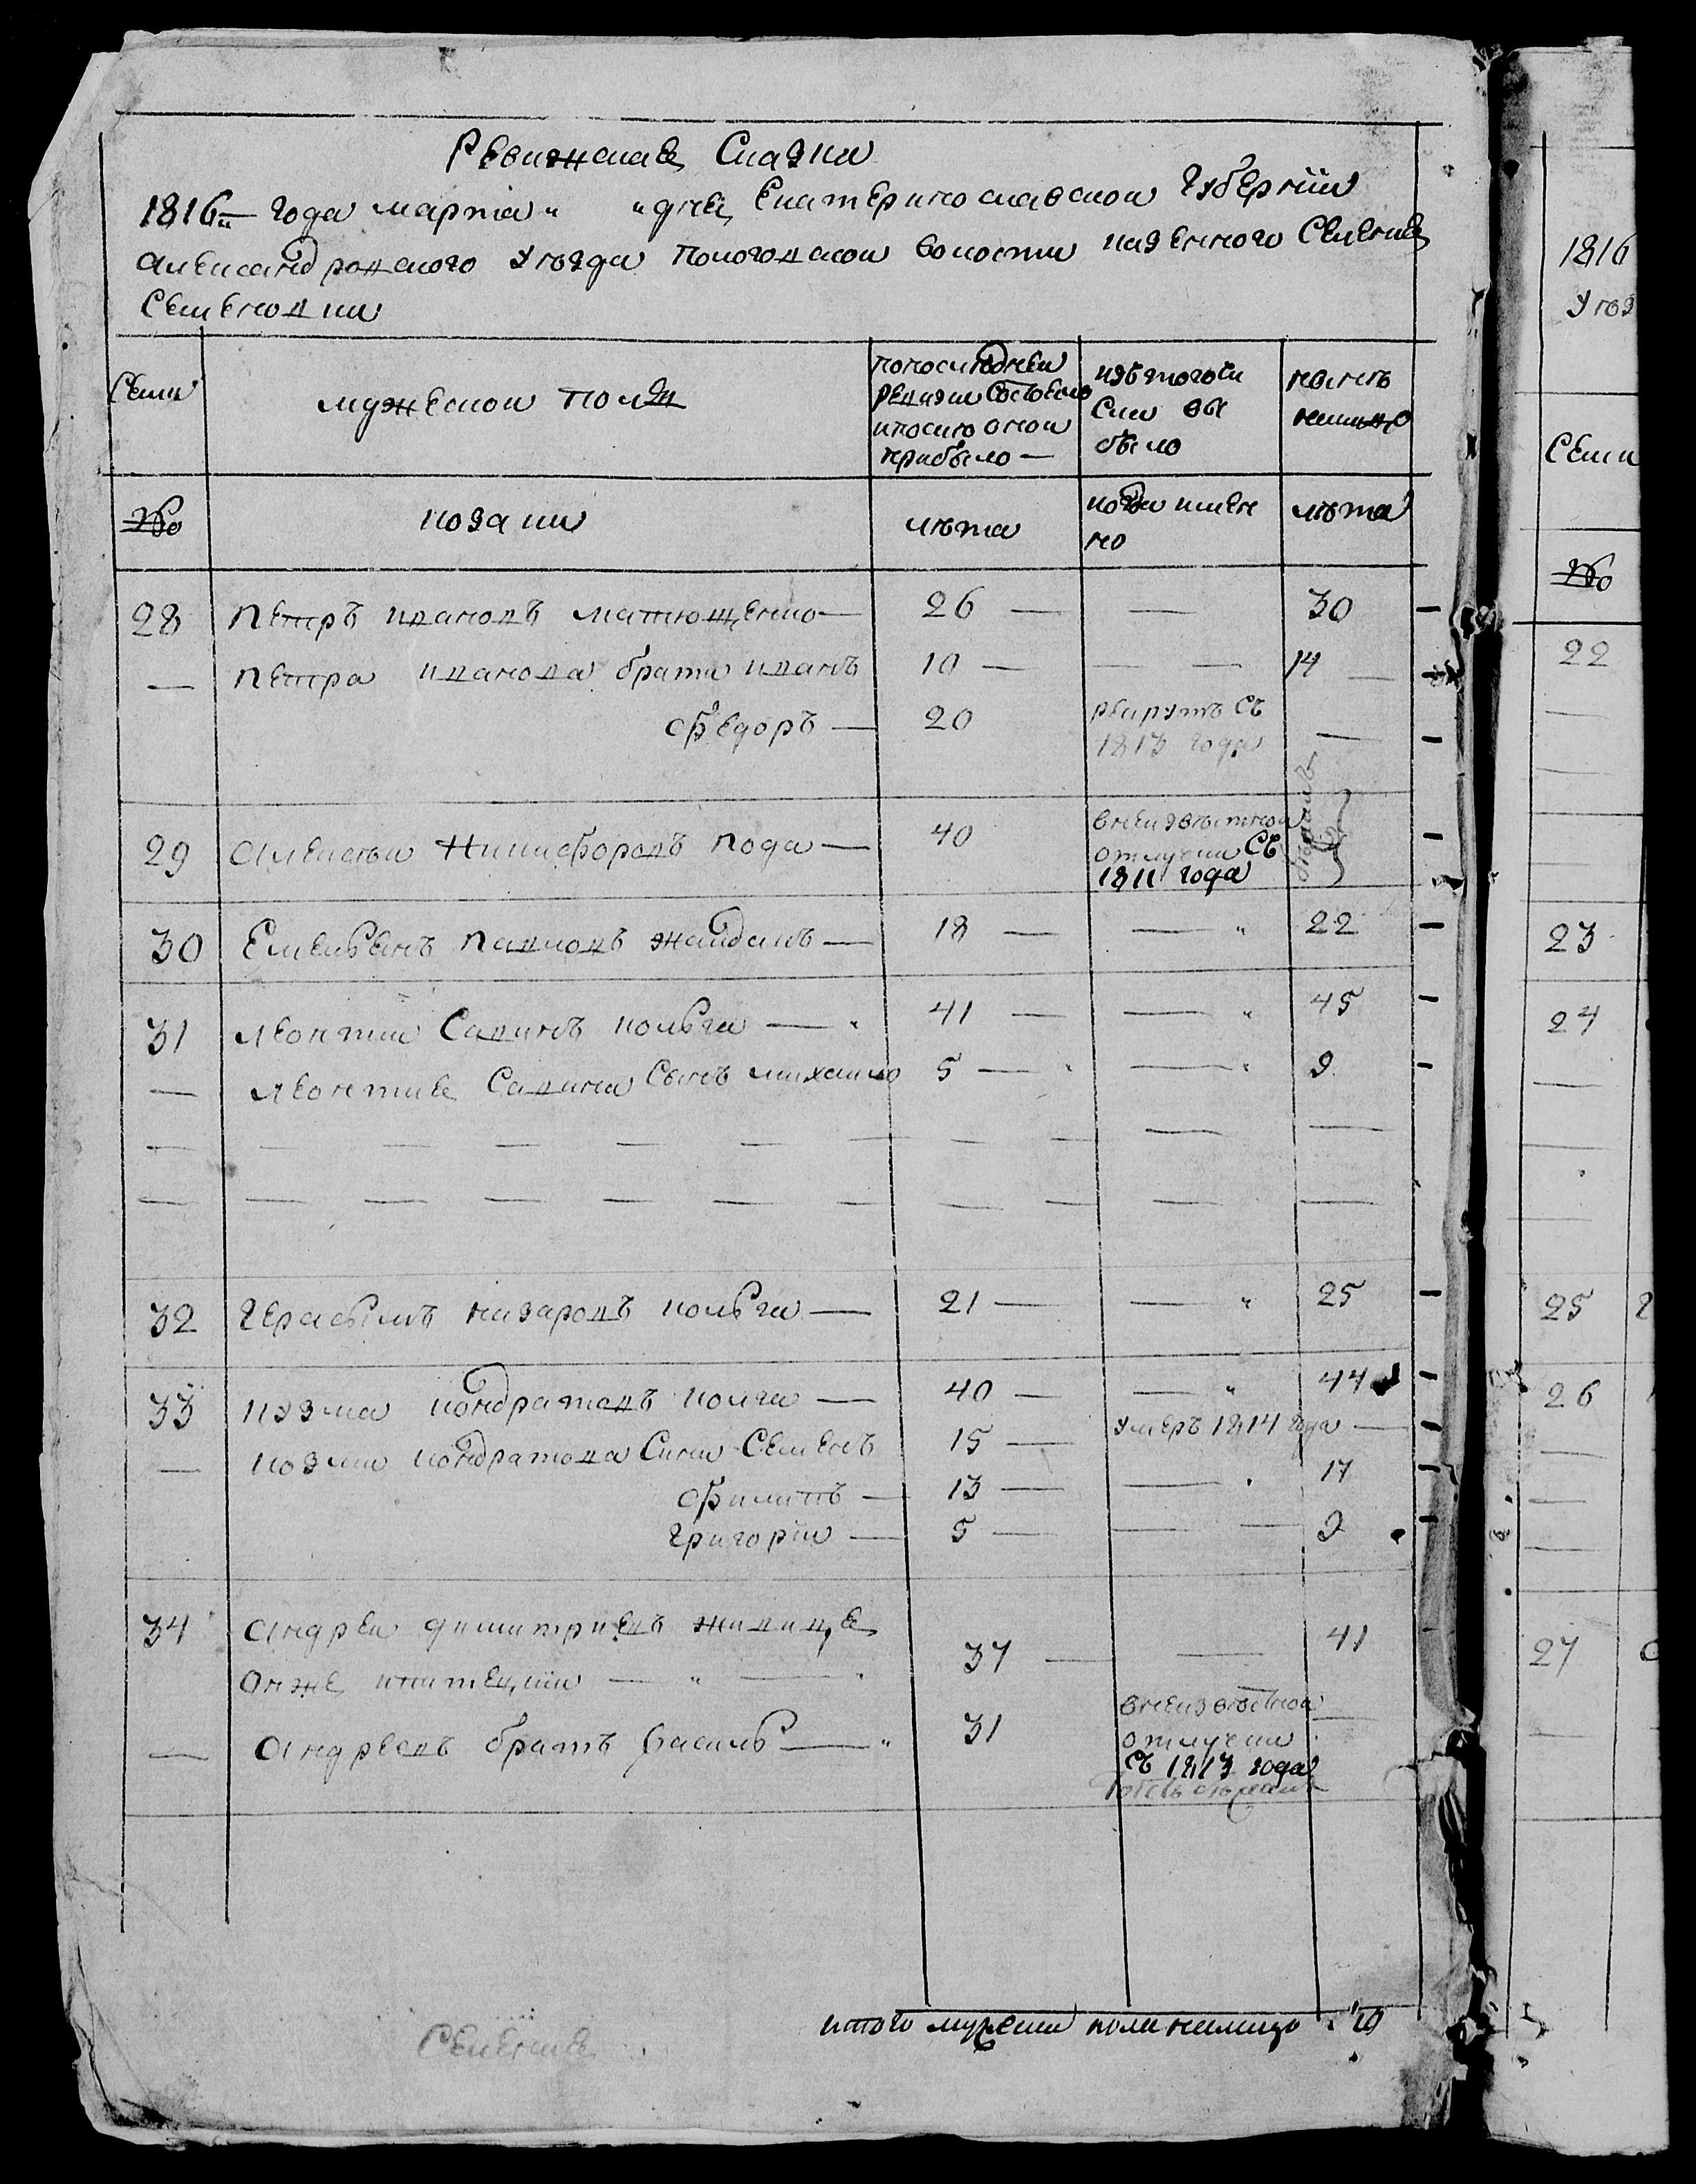 Ревижская Сказка
1816го года марта " " дня Екатеринославской Губернiи
Александровского Уезда Пологовской волости казенного Селения
Семеновки
Семьи
мужеской полъ
по последней
ревизии Состояло
и после оной
прибыло —
изъ того чи
сла вы
было
ныне
налицо
№
козаки
лета
когда имен
но
лета
28 Петръ Ивановъ Матющенко — 26 — — 30
— Петра Иванова братья Иванъ 10 — — — 14 —
Федоръ — 20 рекрутъ съ
1813 года —
29 Алексей Никифоровъ Кода — 40 в неизвестной
отлучки Съ
1811 года
30 Емельянъ Павловъ Жайданъ — 18 — — " 22
31 Леонтий Савинъ Кольга — " 41 — — " 45
— Леонтия Савина Сынъ Михайло 5 — " — " 9
32 Герасымъ Назаровъ Кольга — 21 — — " 25
33 Козма Кондратовъ Колга — 40 — — " 44
— Козмы Кондратова Сыны Семенъ 15 — умеръ 1814 года —
Филипъ — 13 — — " 17
Григорiй — 5 — — — 9
34 Андрей Димитриевъ Живица
Онже — " — " 37 — — 41
— Андреевъ братъ Василь — " 31 в неизвестной —
отлучки
съ 1813 года
итого мужеска пола налицо 10
Селения
1816
Уез
Семьи
№
22
23
24
25
26
27